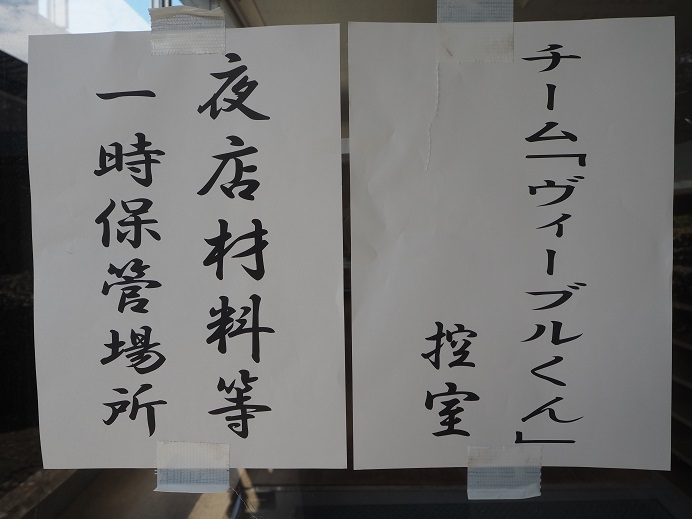 チーム「ヴィーブルくん」
控室
夜店材料等
一時保管場所